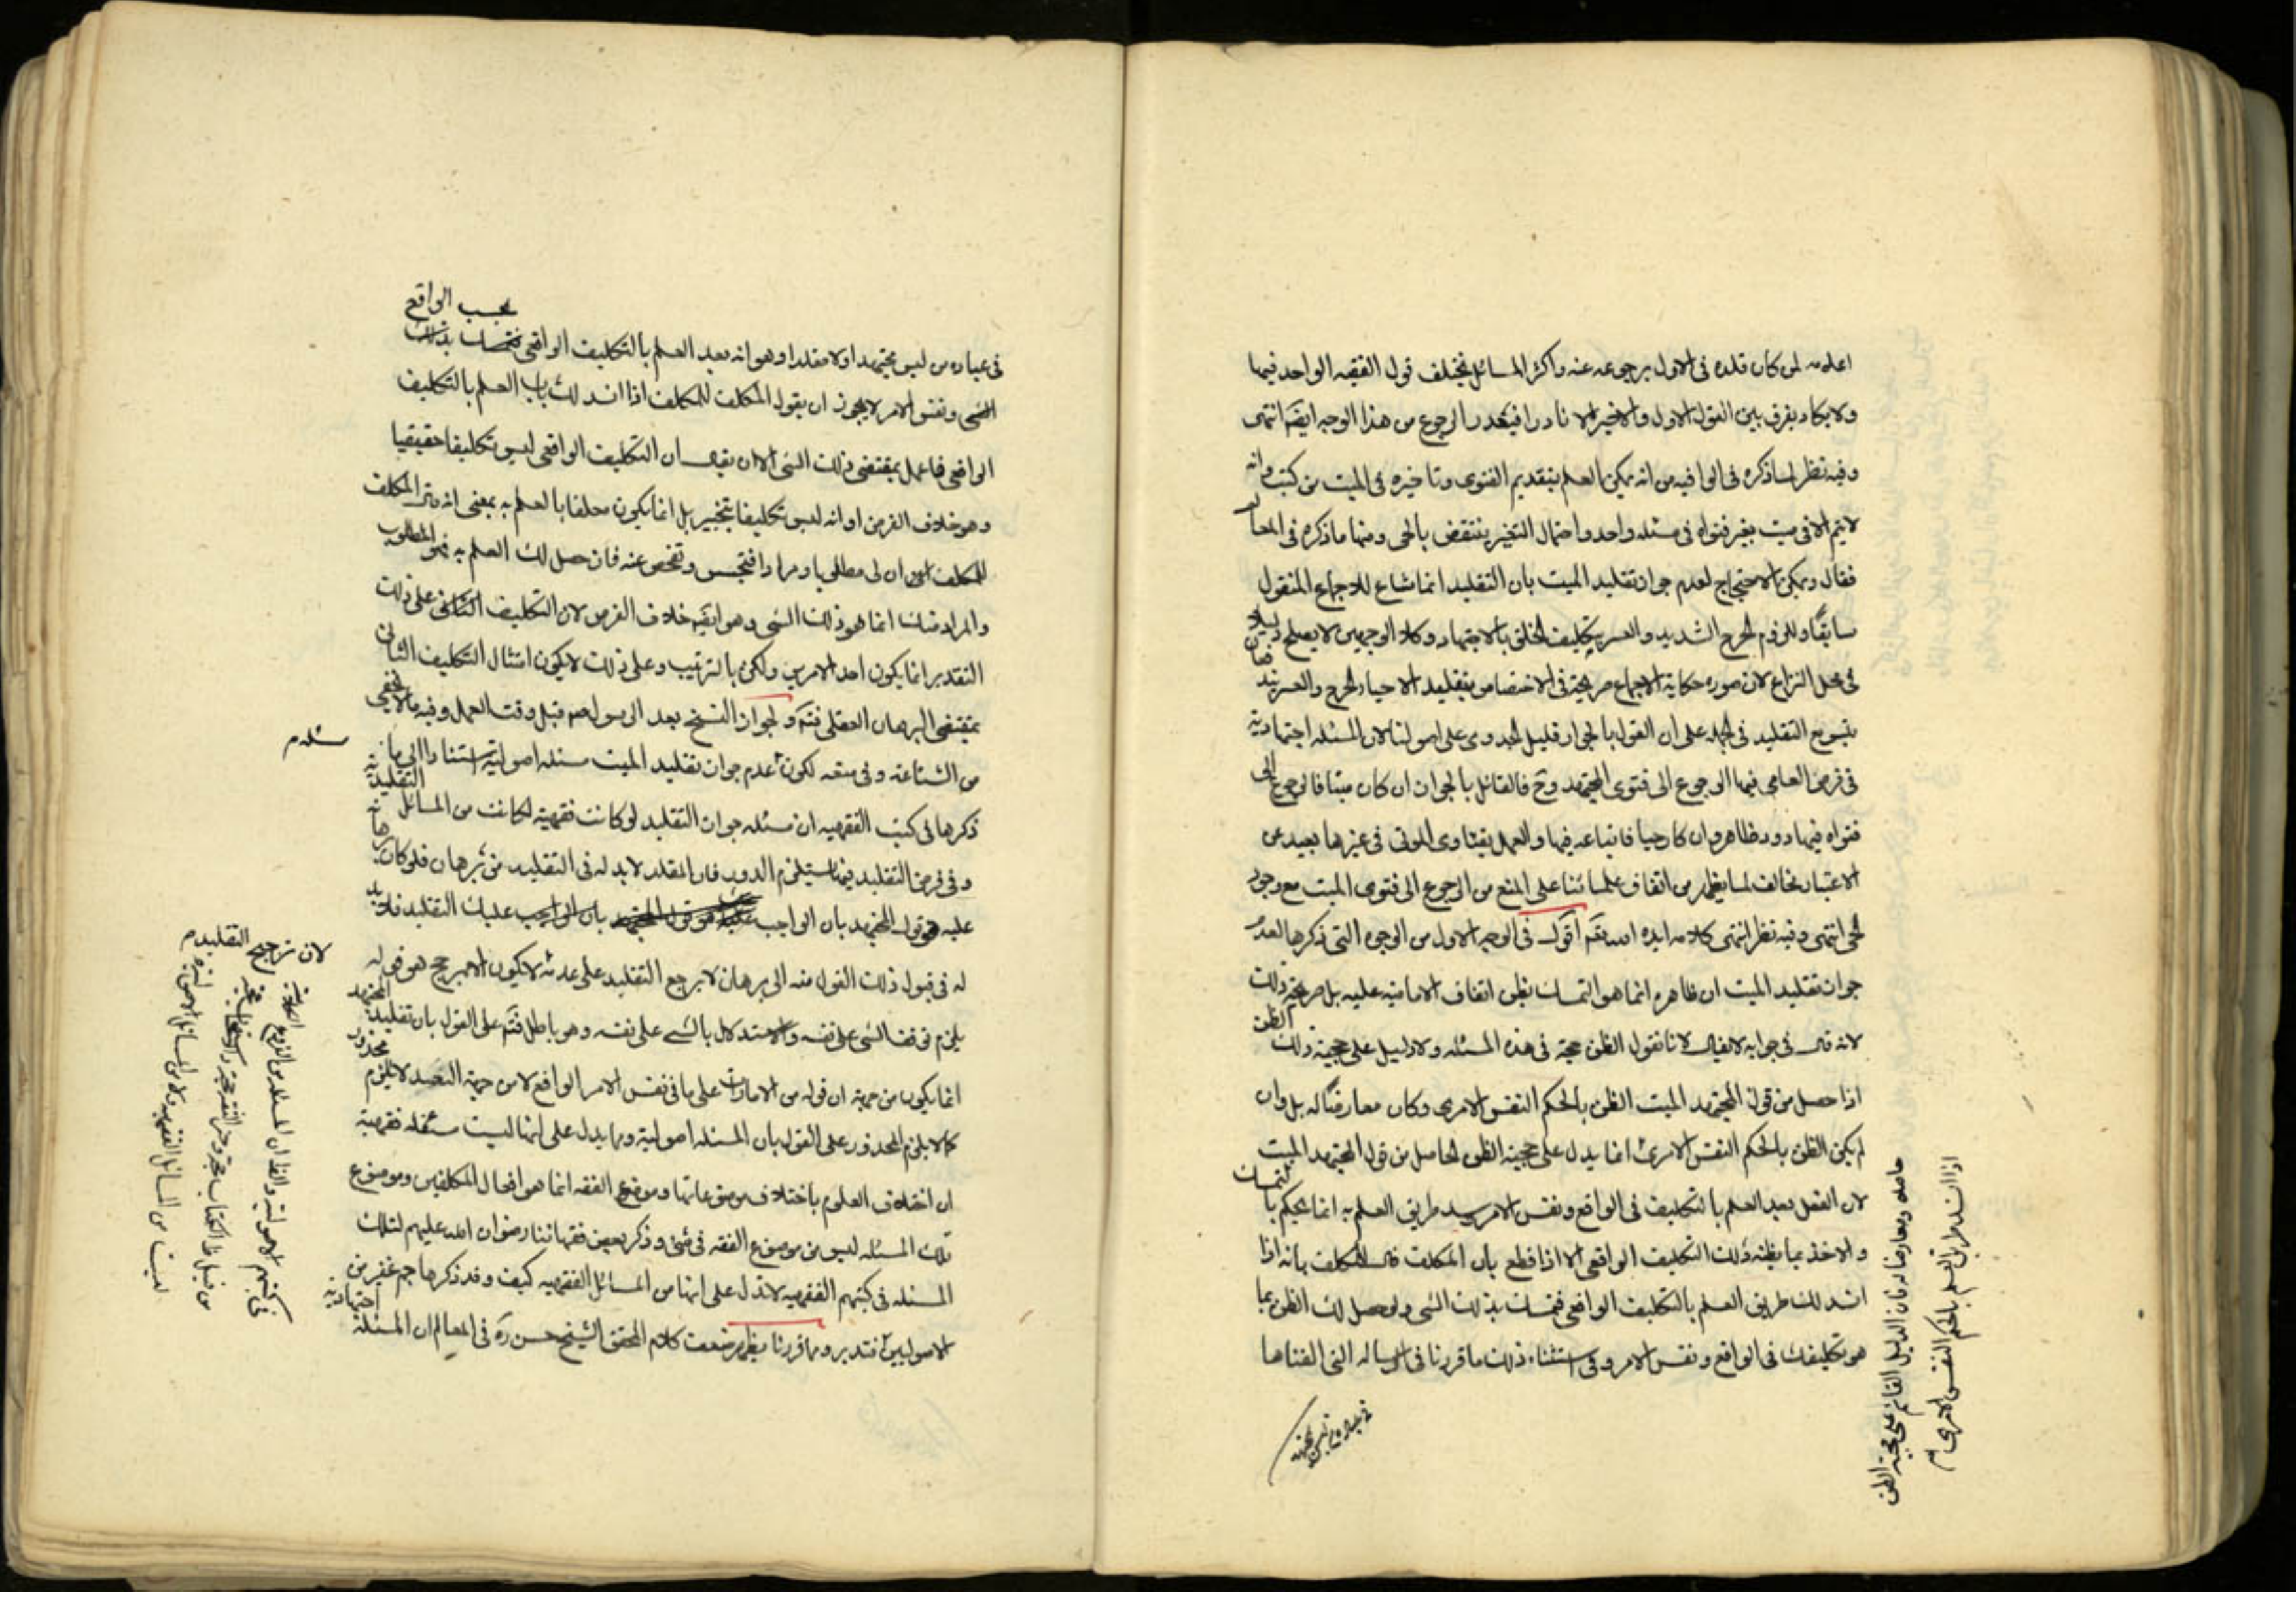 اعلامه لمن كان قلده في الاول برجوعه عنه واكثر المسائل يختلف قول الفقيه الواحد فيها
ولا يكاد يفرق بين القول الاول والاخير الا نادرا فيتعذر الرجوع من هذا الوجه ايضا انتهى
وفيه نظر لما ذكره في الوافيه من انه يمكن العلم بتقديم الفتوى وتاخيره في الميت من كتبه وانه
لا يتم الا في ميت يغير فتواه في مسئله واحد واحتمال التغير ينتقض بالحى ومنها ما ذكره في المعالم
فقال ويمكن الاحتجاج لعدم جواز تقليد الميت بان التقليد انما شاع للاجماع المنقول
سابقا وللزوم الحرج الشديد والعسر بتكليف الخلق بالاجتهاد وكلا الوجهين لا يصلح دليلا
في محل النزاع لان صوره حكاية الاجماع صريحة في الاختصاص بتقليد الاحياء والحرج والعسر يند فعان
بتسويغ التقليد في الجمله على ان القول بالجواز قليل الجدوى على اصولنا لان المسئله اجتهادية
في فرض العامى فيها الرجوع الى فتوى المجتهد وح فالقائل بالجواز ان كان ميتا فالرجوع الى
فتواه فيها دور ظاهر وان كان حيا فاتباعه فيها والعمل بفتاوى الموتى في غيرها بعيد عن
الاعتبار مخالف لما يظهر من اتفاق علمائنا على المنع من الرجوع الى فتوى الميت مع وجود
الحى انتهى وفيه نظر انتهى كلامه ايده الله تع اقول في الوجه الاول من الوجوه التي ذكرها لعدم
جواز تقليد الميت ان ظاهره انما هو التمسك بظن اتفاق الامامية عليه بل صريحه ذلك
لانه قال في جوابه لا يقال لانا نقول الظن حجة في هذه المسئله ولا دليل على حجية ذلك الظن
اذا حصل من قول المجتهد الميت الظن بالحكم النفس الامرى وكان معارضا له بل وان
لم يكن الظن بالحكم النفس الامرى انما يدل على حجية الظن الحاصل من قول المجتهد الميت
لان العقل بعيد العلم بالتكليف في الواقع ونفس الامر وسد طريق العلم به انما يحكم بالتمسك
والاخذ بما يظنه ذلك التكليف الواقعى الا اذا قطع بان المكلف قال للمكلف بانه اذا
انسد لك طريق العلم بالتكليف الواقعى فتمسك بذلك الشى ولو حصل لك الظن بما
هو تكليفك في الواقع ونفس الامر وفي استثناء ذلك ما قررنا في الرساله التي الفناها
حاصله ومعارضا له فان الدليل القائم على حجية الظن
اذا انسد طريق العلم بالحكم النفس الامرى م
بحسب الواقع
في عباره من ليس مجتهدا ولا مقلدا وهو انه بعيد العلم بالتكليف الواقعى بذلك
الشى ونفس الامر لا يجوز ان يقول المكلف للمكلف اذا انسد لك باب العلم بالتكليف
الواقعى فاعمل بمقتضى ذلك الشى الا ان يقال ان التكليف الواقعى ليس تكليفا حقيقيا
وهو خلاف الفرض او انه ليس تكليفا بل انما يكون معلقا بالعلم به بمعنى انه المكلف
للمكلف ان لى مطلبا ومرادا فتجسس وتفحص عنه فان حصل لك العلم به فهو المطلوب
والمراد منك انما هو ذلك الشى وهو ايضا خلاف الفرض لان التكليف الثانى على ذلك
التقدير انما يكون احد الامرين ولكن بالترتيب وعلى ذلك لا يكون امتثال التكليف الثانى
بمقتضى البرهان العقلى فتم ولجواز النسخ بعد الرسول صم قبل وقت العمل وفيه ما لا يخفى
من الشناعة وفي منعه لكون عدم جواز تقليد الميت مسئله اصولية استنادا الى ما
مسئله م
ذكرها في كتب الفقهيه ان مسئله جواز التقليد لو كانت فقهية لكانت من المسائل التقليدية
وفي فرض التقليد فيها يستلزم الدور فان المقلد لا بد له في التقليد من برهان فلو كان برهانه
عليه هو قول المجتهد بان الواجب عليك التقليد فلا بد
له في قبول ذلك القول منه الى برهان لا يرجع التقليد على عدمه لا يكون الا مرجح هو قوله
يلزم توقف الشى على نفسه والاستدلال بالشى على نفسه وهو باطل فتم على القول بان تقليد المجتهد
انما يكون من جهة ان قوله من الامارات على ما في نفس الامر الواقع لا من جهة التعبد لا يلزم محذور
كما لا يلزم المحذور على القول بان المسئله اصولية وما يدل على انها ليست مسئله فقهية
ان اختلاف العلوم باختلاف موضوعاتها وموضوع الفقه انما هو افعال المكلفين وموضوع
تلك المسئله ليس من موضوع الفقه في شئ وذكر بعض فقهائنا رضوان الله عليهم لتلك
المسئله في كتبهم الفقهيه لا تدل على انها من المسائل الفقهيه كيف وقد ذكرها جم غفير من
الاصوليين فتدبر وما قررنا يظهر ضعف كلام المحقق الشيخ حسن ره في المعالم ان المسئلة اجتهادية
لان ترجيح التقليد م
في كتبهم الاصولية
ليست من المسائل الفقهيه ولا من المسائل الاصولية